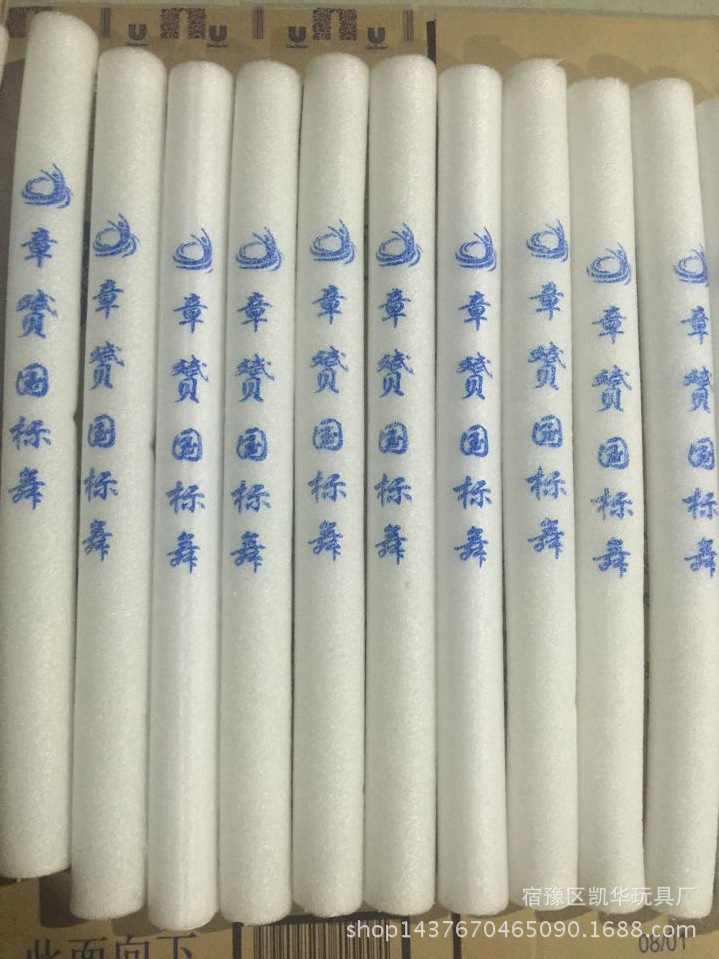 章赟国标舞
章赟国标舞
章赟国标舞
章赟国标舞
章赟国标舞
章赟国标舞
章赟国标舞
章赟国标舞
章赟国标舞
章赟国标舞
宿豫区凯华玩具厂
shop1437670465090.1688.com
此面向下
08/01